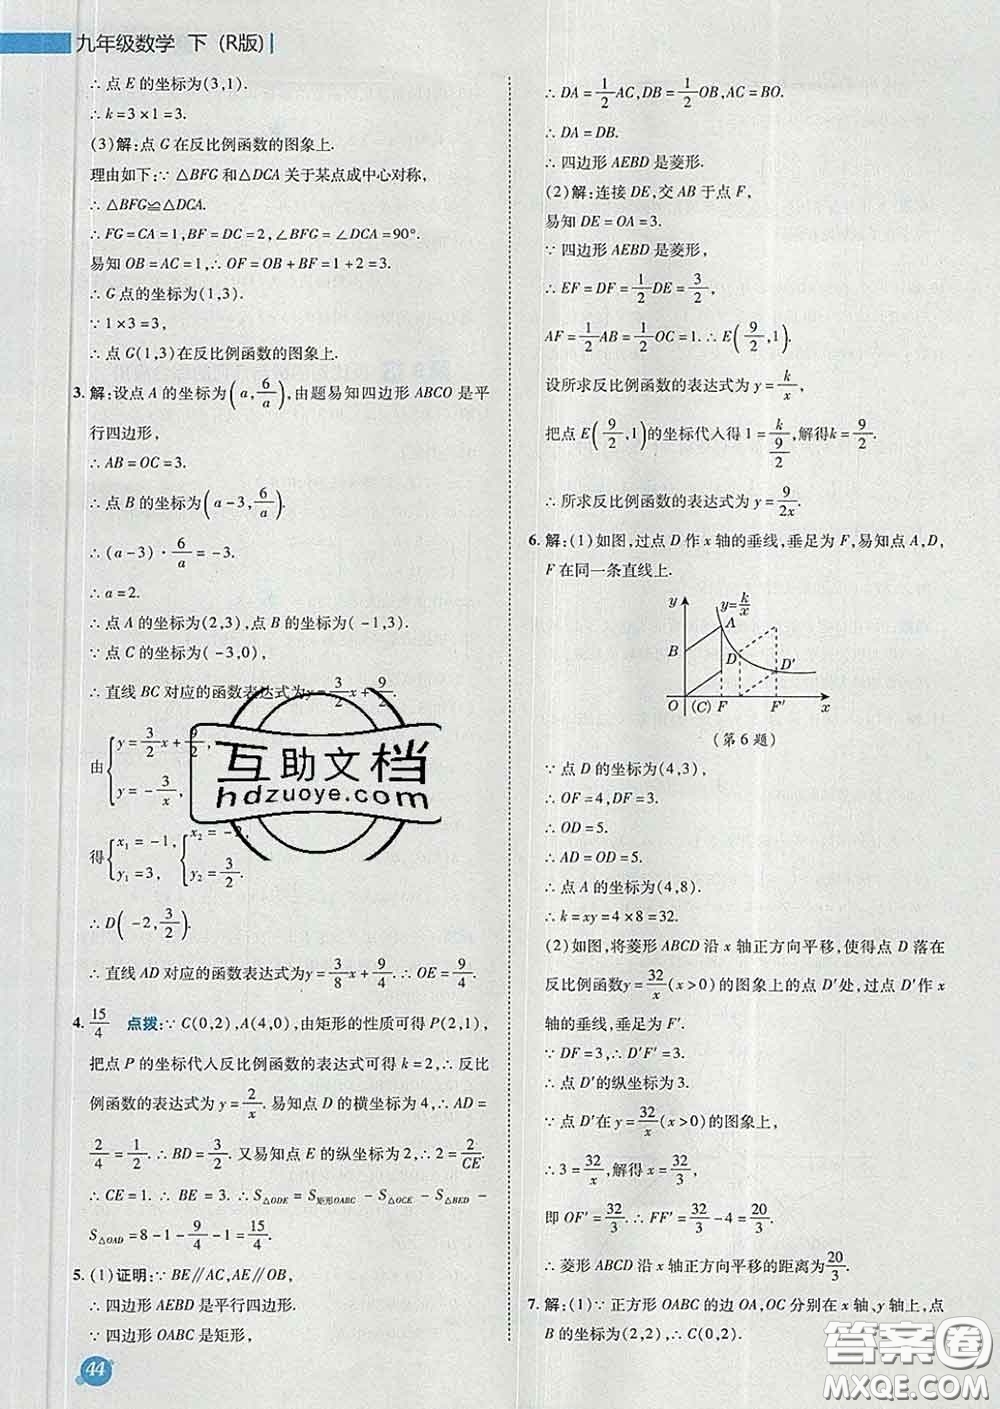 九年级数学 下 (R版)
∴ 点 E 的坐标为(3,1).
∴ k=3×1=3.
(3)解:点 G 在反比例函数的图象上.
理由如下:∵ △BFG 和△DCA 关于某点成中心对称,
∴ △BFG≌△DCA.
∴ FG=CA=1,BF=DC=2,∠BFG=∠DCA=90°.
易知 OB=AC=1,∴ OF=OB+BF=1+2=3.
∴ G 点的坐标为(1,3).
∵ 1×3=3,
∴ 点 G(1,3)在反比例函数的图象上.
3. 解:设点 A 的坐标为(a, 6/a),由题易知四边形 ABCO 是平
行四边形,
∴ AB=OC=3.
∴ 点 B 的坐标为(a-3, 6/a).
∴ (a-3)·6/a=-3.
∴ a=2.
∴ 点 A 的坐标为(2,3),点 B 的坐标为(-1,3).
∵ 点 C 的坐标为(-3,0),
∴ 直线 BC 对应的函数表达式为y=3/2x+9/2.
由{y=3/2x+9/2,
y=-3/x,
得{x₁=-1, {x₂=-2,
y₁=3, y₂=3/2.
∴ D(-2, 3/2).
∴ 直线 AD 对应的函数表达式为y=3/8x+9/4. ∴ OE=9/4.
4. 15/4 点拨:∵ C(0,2),A(4,0),由矩形的性质可得 P(2,1),
把点 P 的坐标代人反比例函数的表达式可得 k=2,∴ 反比
例函数的表达式为 y=2/x. 易知点 D 的横坐标为 4,∴ AD=
2/4=1/2. ∴ BD=3/2. 又易知点 E 的纵坐标为 2,∴ 2=2/CE.
∴ CE=1. ∴ BE=3. ∴ S△ODE=S矩形OABC-S△OCE-S△BED-
S△OAD=8-1-9/4-1=15/4.
5. (1)证明:∵ BE∥AC,AE∥OB,
∴ 四边形 AEBD 是平行四边形.
∵ 四边形 OABC 是矩形,
44
∴ DA=1/2AC,DB=1/2OB,AC=BO.
∴ DA=DB.
∴ 四边形 AEBD 是菱形.
(2)解:连接 DE,交 AB 于点 F,
易知 DE=OA=3.
∵ 四边形 AEBD 是菱形,
∴ EF=DF=1/2DE=3/2,
AF=1/2AB=1/2OC=1. ∴ E(9/2,1).
设所求反比例函数的表达式为 y=k/x,
把点 E(9/2,1)的坐标代人得 1=k/(9/2),解得k=9/2.
∴ 所求反比例函数的表达式为 y=9/2x.
6. 解:(1)如图,过点 D 作 x 轴的垂线,垂足为 F,易知点 A,D,
F 在同一条直线上.
y
y=k/x
A
B
D
D′
O (C) F F′ x
(第 6 题)
∵ 点 D 的坐标为(4,3),
∴ OF=4,DF=3.
∴ OD=5.
∴ AD=OD=5.
∴ 点 A 的坐标为(4,8).
∴ k=xy=4×8=32.
(2)如图,将菱形 ABCD 沿 x 轴正方向平移,使得点 D 落在
反比例函数y=32/x(x>0)的图象上的点 D′处,过点 D′作 x
轴的垂线,垂足为 F′.
∵ DF=3,∴ D′F′=3.
∴ 点 D′的纵坐标为 3.
∵ 点 D′在 y=32/x(x>0)的图象上,
∴ 3=32/x,解得 x=32/3,
即 OF′=32/3. ∴ FF′=32/3-4=20/3.
∴ 菱形 ABCD 沿 x 轴正方向平移的距离为20/3.
7. 解:(1)∵ 正方形 OABC 的边 OA,OC 分别在 x 轴、y 轴上,点
B 的坐标为(2,2),∴ C(0,2).
互助文档
hdzuoye.com
答案圈
MXQE.COM